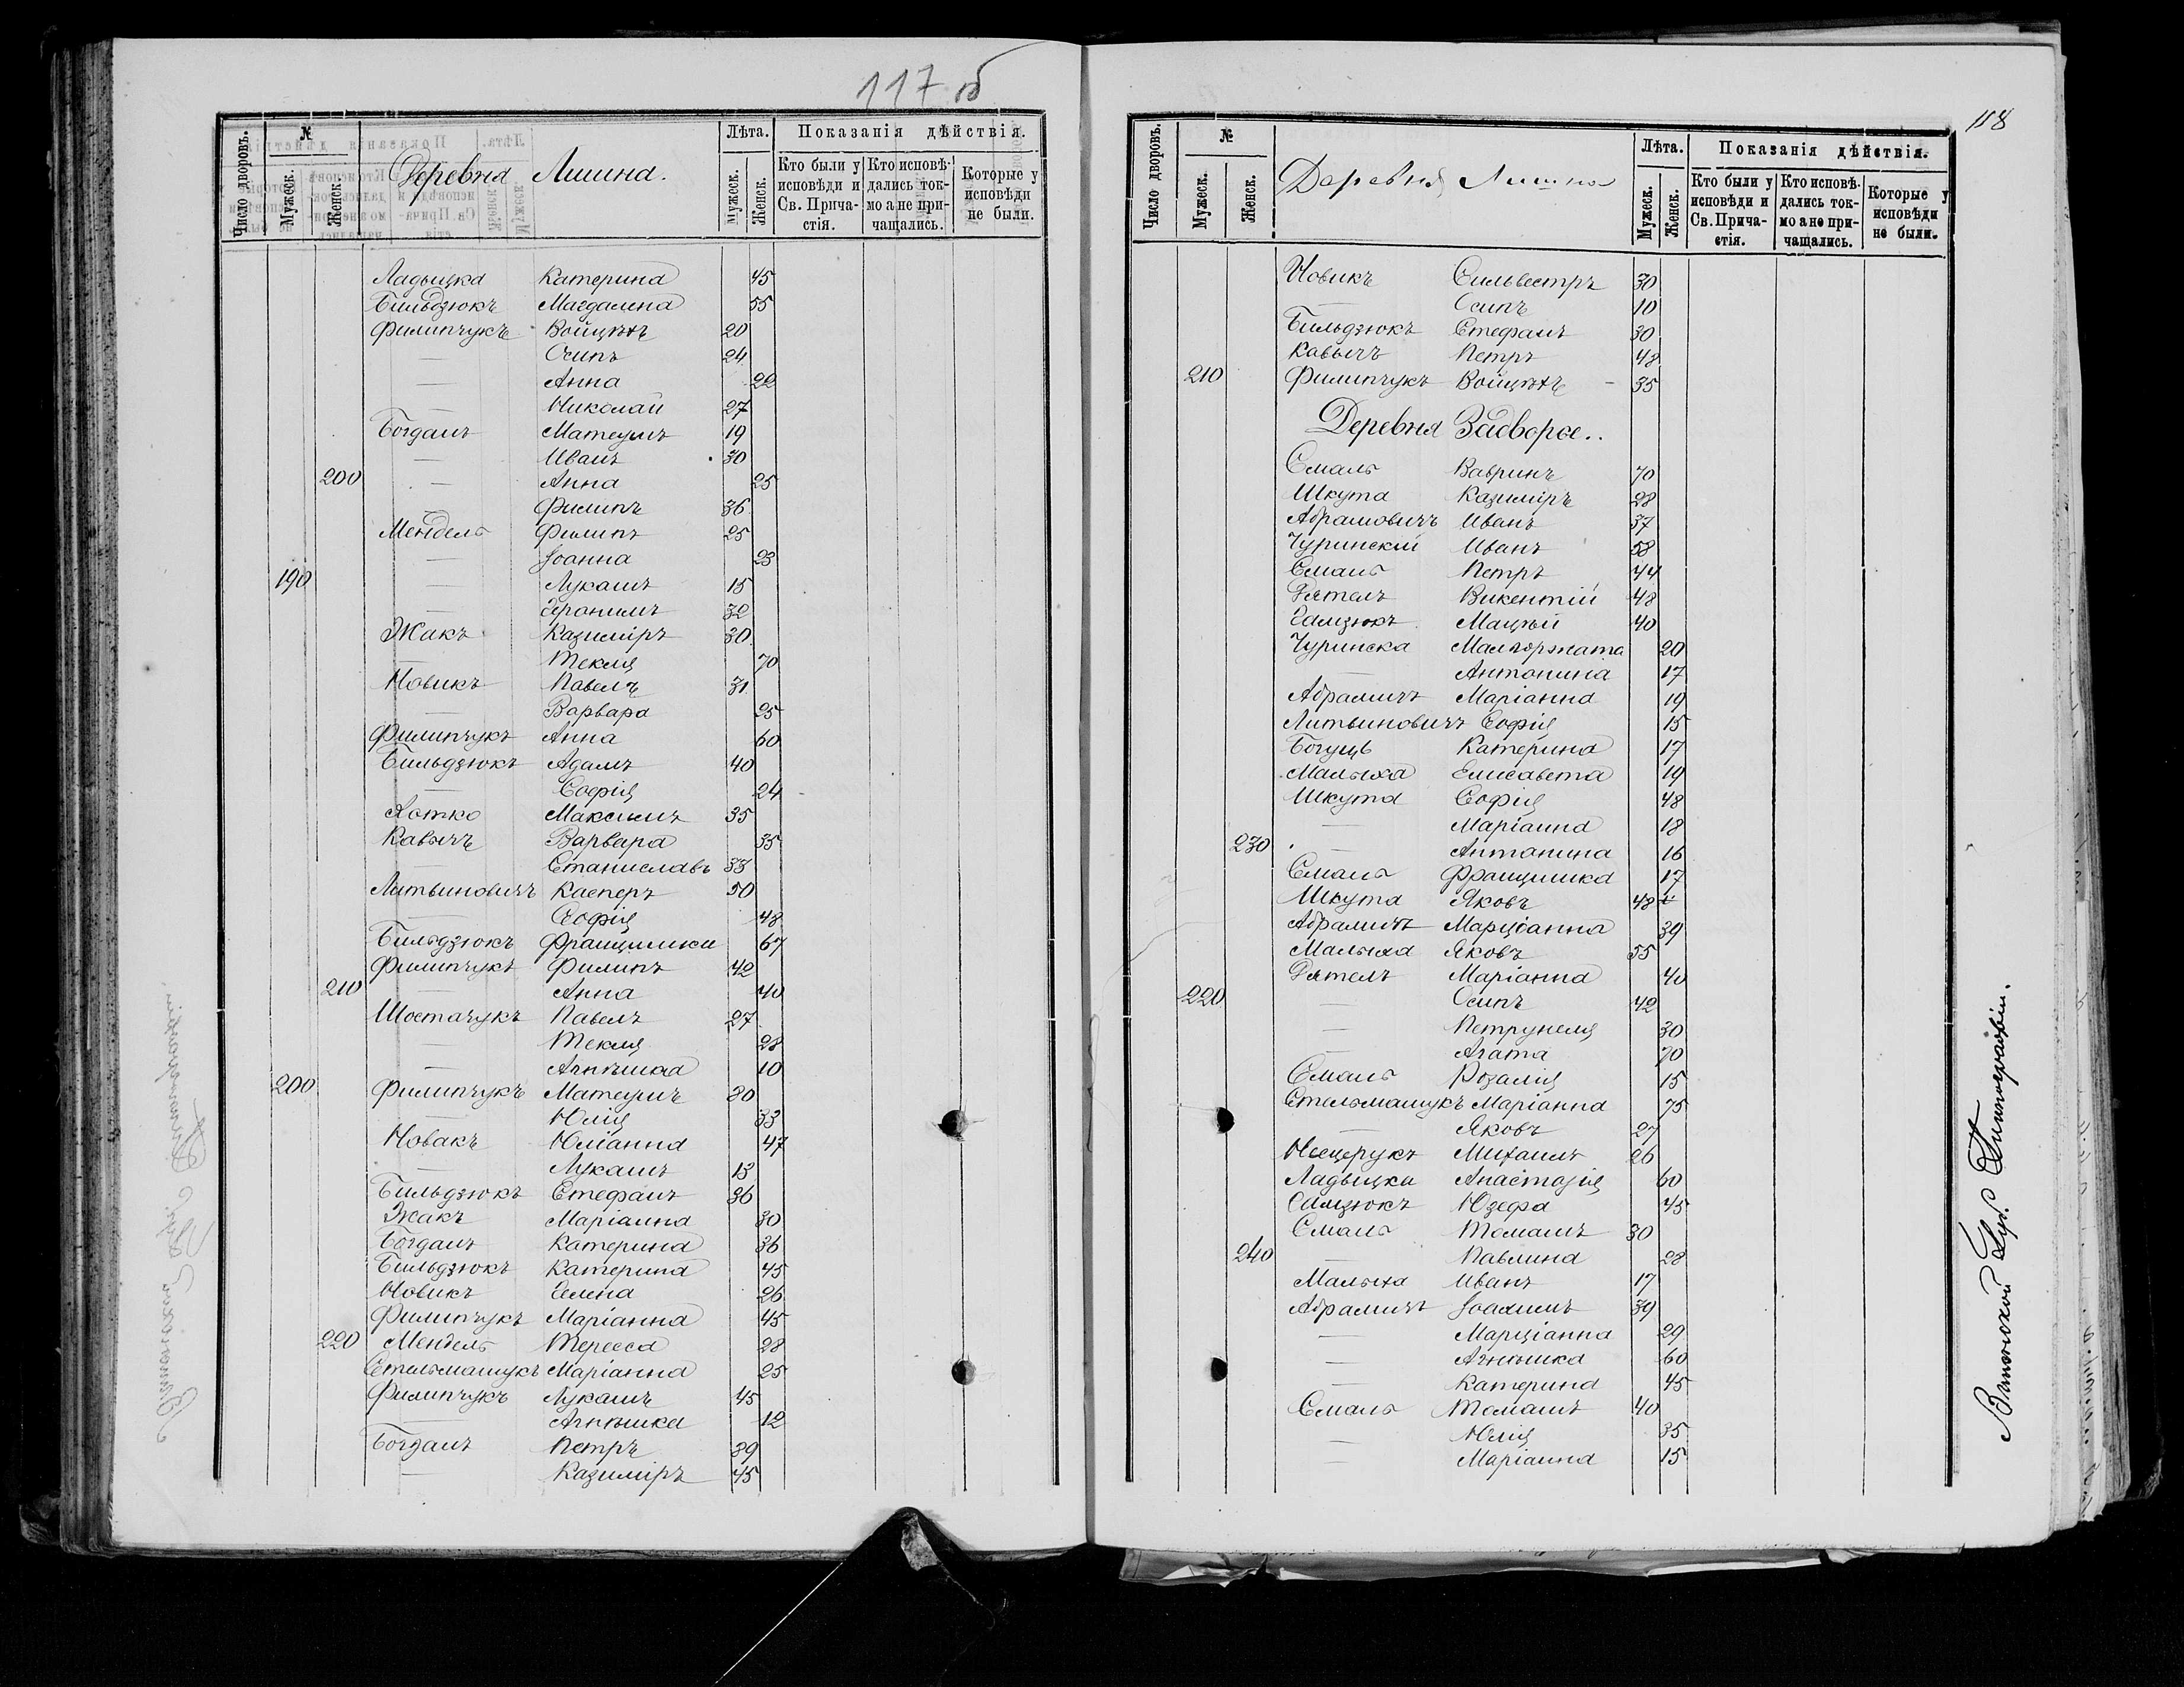 117 об
Число дворовъ. № Лѣта. Показанія дѣйствія.
Мужеск. Женск. Деревня Лишна. Мужеск. Женск. Кто были у исповѣди и Св. Прича-стія. Кто исповѣ-дались ток-мо а не при-чащались. Которые у исповѣди не были.
Ладыцка Катерина 45
Бильдзюкъ Магдалена 55
Филипчукъ Войцѣхъ 20
— Осипъ 24
— Анна 22
— Николай 27
Богданъ Матеушъ 19
— Иванъ 30
200 — Анна 25
— Филипъ 36
Мендель Филипъ 25
— Іоанна 23
190 — Лукашъ 15
— Геронимъ 32
Жакъ Казиміръ 30
— Текля 70
Новикъ Павелъ 31
— Варвара 25
Филипчукъ Анна 60
Бильдзюкъ Адамъ 40
— Софія 24
Хотко Максимъ 35
Кавычъ Варвара 35
— Станиславъ 33
Литвиновичъ Касперъ 50
— Софія 48
Бильдзюкъ Францишка 67
Филипчукъ Филипъ 42
210 — Анна 40
Шостачукъ Павелъ 27
— Текля 28
— Агнѣшка 10
200 Филипчукъ Матеушъ 30
— Юлія 33
Новакъ Юліанна 47
— Лукашъ 13
Бильдзюкъ Стефанъ 36
Жакъ Маріанна 30
Богданъ Катерина 36
Бильдзюкъ Катерина 45
Новикъ Елена 26
Филипчукъ Маріанна 45
220 Мендель Тересса 28
Стельмашукъ Маріанна 25
Филипчукъ Лукашъ 45
— Агнѣшка 12
Богданъ Петръ 39
— Казиміръ 45
118
Число дворовъ. № Лѣта. Показанія дѣйствія.
Мужеск. Женск. Деревня Лишна Мужеск. Женск. Кто были у исповѣди и Св. Прича-стія. Кто исповѣ-дались ток-мо а не при-чащались. Которые у исповѣди не были.
Новикъ Сильвестръ 30
— Осипъ 10
Бильдзюкъ Стефанъ 30
Кавычъ Петръ 48
210 Филипчукъ Войцѣхъ 35
Деревня Задворье..
Смаль Вавринъ 70
Шкута Казиміръ 28
Абрамовичъ Иванъ 37
Чуринскій Иванъ 58
Смаль Петръ 44
Дятелъ Викентій 48
Самзюкъ Мацѣй 40
Чуринска Малгоржата 20
— Антонина 17
Абрамичъ Маріанна 19
Литвиновичъ Софія 15
Богуць Катерина 17
Малыха Елисавета 19
Шкута Софія 48
— Маріанна 18
230 — Антонина 16
Смаль Францишка 17
Шкута Яковъ 48
Абрамичъ Марціанна 39
Малыха Яковъ 55
Дятелъ Маріанна 40
220 — Осипъ 42
— Петрунеля 30
— Агата 70
Смаль Розалія 15
Стельмашукъ Маріанна 75
— Яковъ 27
Нещерукъ Михаилъ 26
Ладыцка Анастазія 60
Самзюкъ Юзефа 45
Смаль Томашъ 30
240 — Павлина 28
Малыха Иванъ 17
Абрамичъ Іоахимъ 39
— Марціанна 29
— Агнѣшка 60
— Катерина 45
Смаль Томашъ 40
— Юлія 35
— Маріанна 15